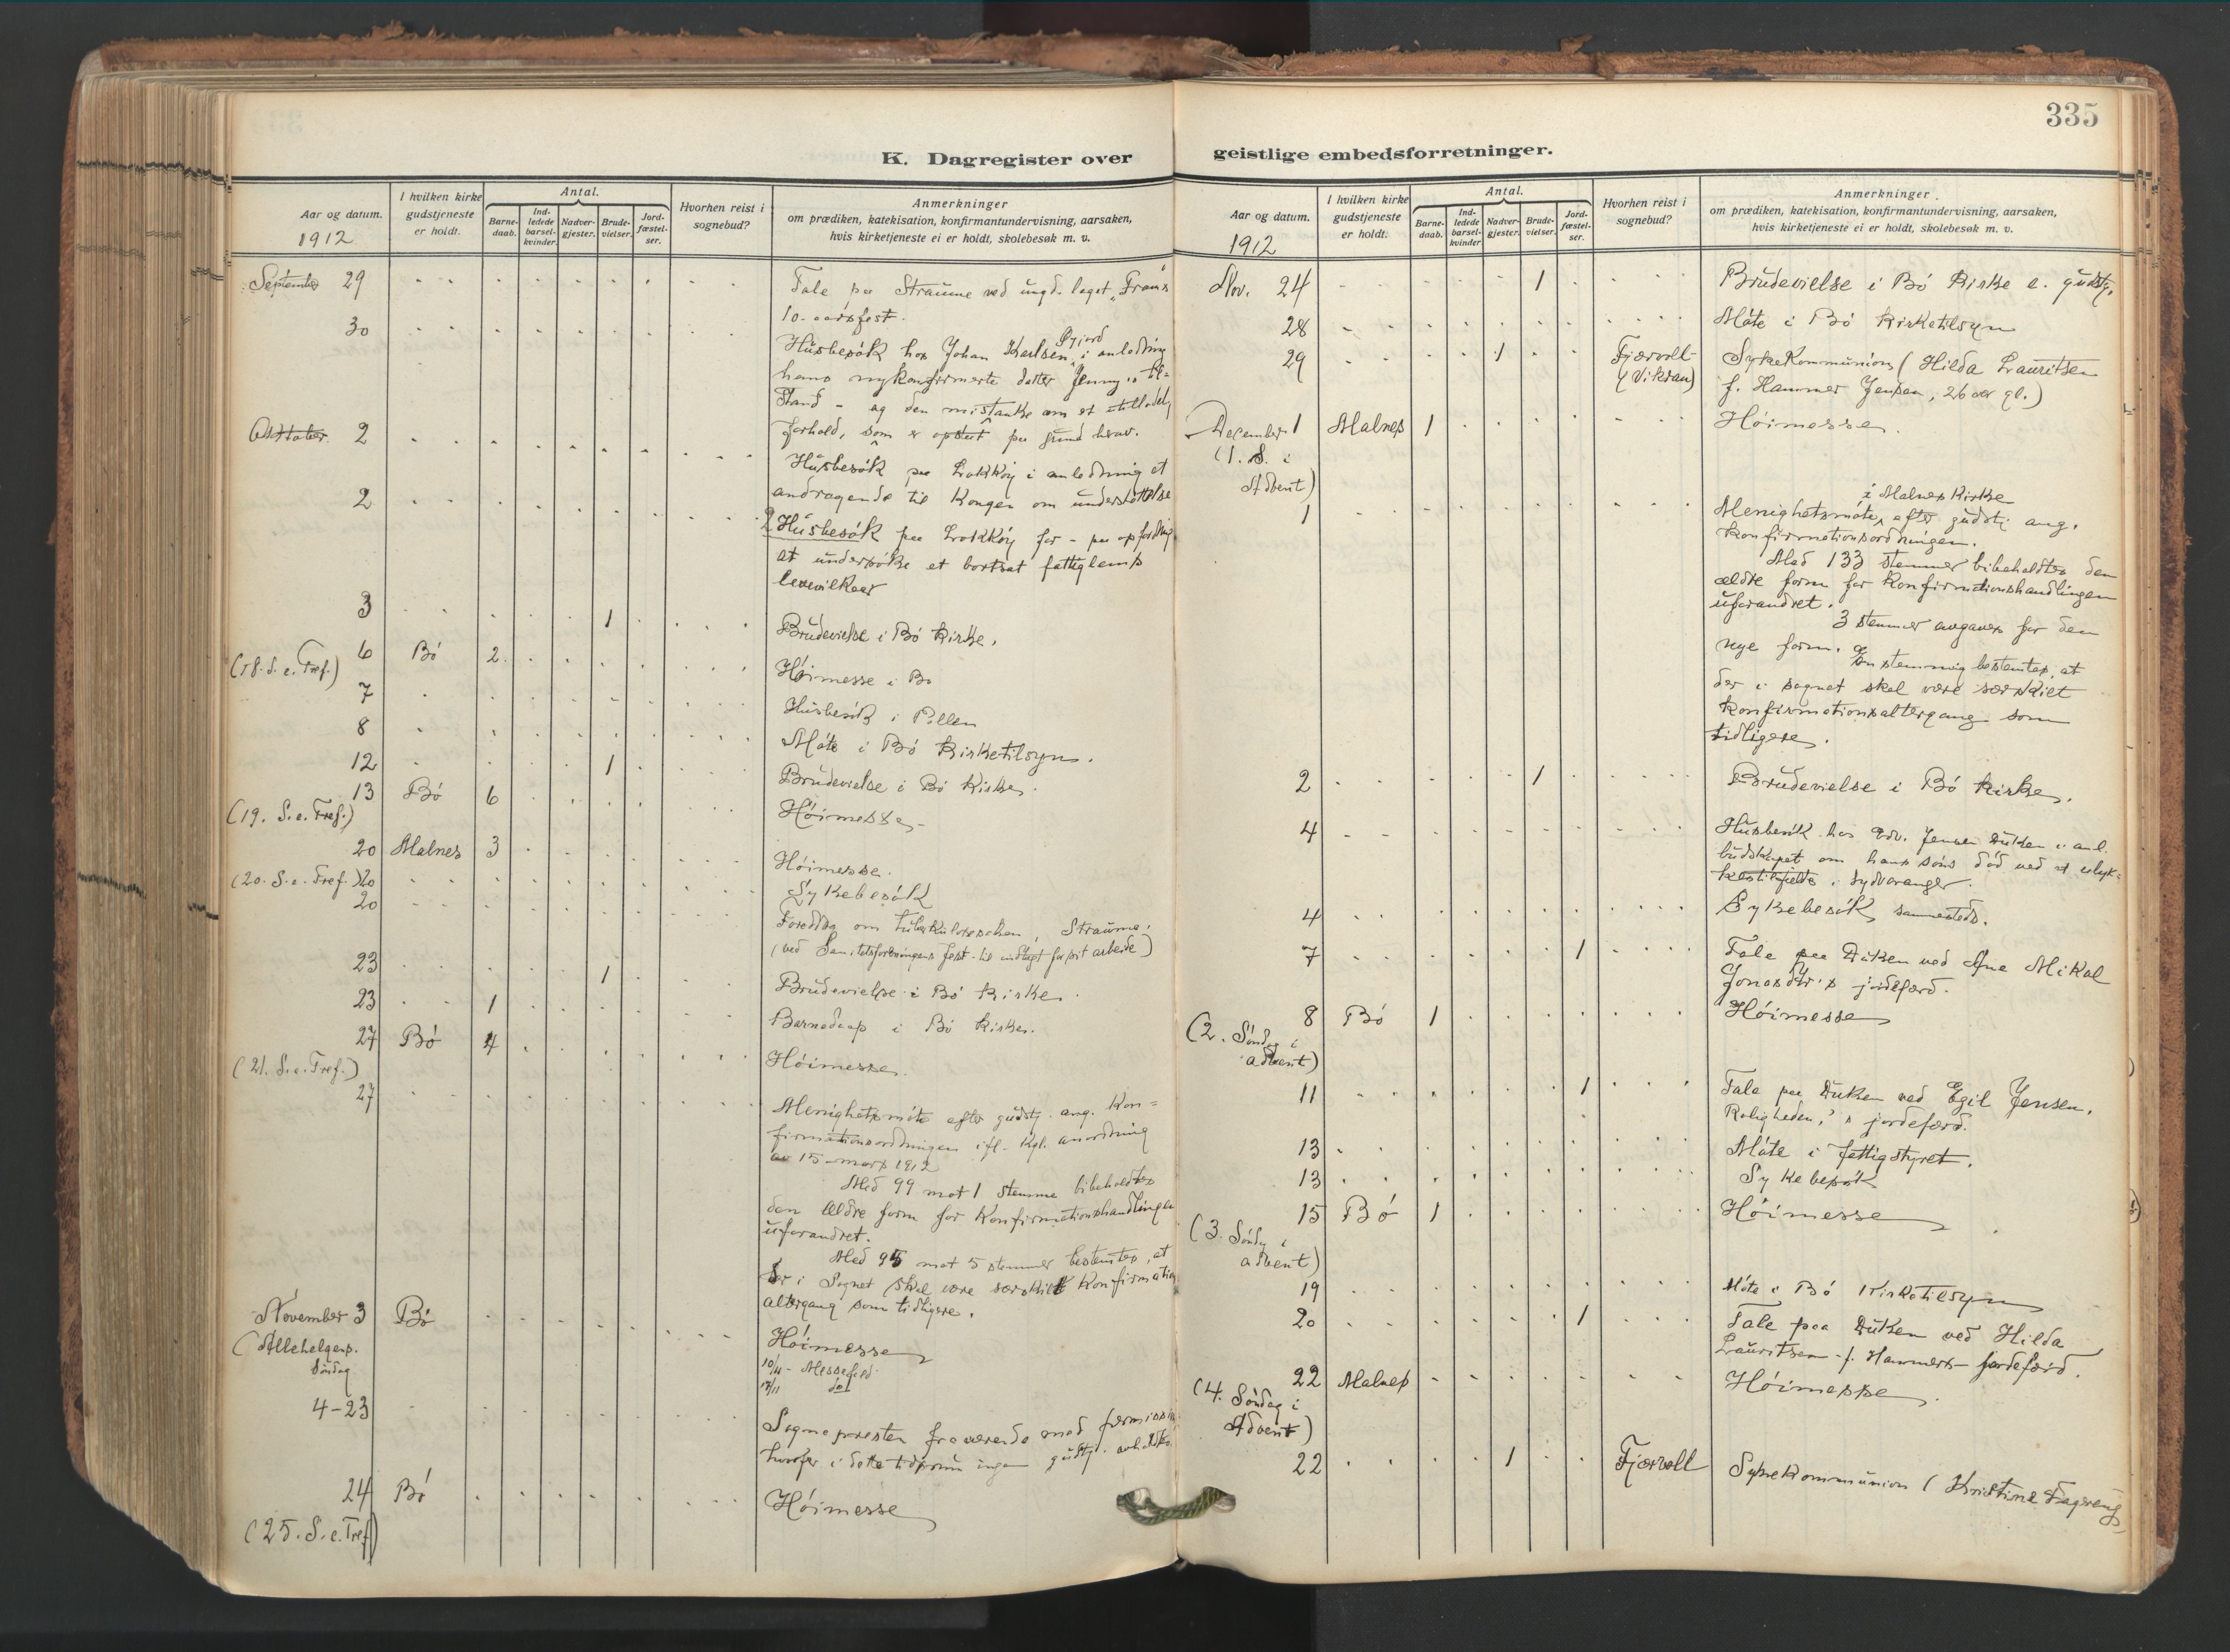 335
K. Dagregister over
Aar og datum.
1912
I hvilken kirke gudstjeneste er holdt.
Antal.
Barne-daab.
Ind-ledede barsel-kvinder.
Nadver-gjester.
Brude-vielser.
Jord-fæstel-ser.
Hvorhen reist i sognebud?
Anmerkninger
om prædiken, katekisation, konfirmantundervisning, aarsaken,
hvis kirketjeneste ei er holdt, skolebesøk m. v.
September 29 Tale paa Straume ved ungd. laget "Fram's
10-aarsfest.
30 Husbesök hos Johan Karlsen, i anledning
hans nykonfirmerte datter Jenny's til-
stand - og den mistanke om et utilladel.
forhold, som er opstaat paa grund herav.
Oktober 2 Husbesök paa Lokköy i anledning et
andragende til Kongen om understöttelse
2 Husbesök paa Lokköy for - paa opfordring
at undersöke et bortsat fattiglems
levevilkaar
3 1 Brudevielse i Bö Kirke.
6 Bö 2 Höimesse i Bö
(18. S. e. Tref.)
7 Husbesök i Pollen
8 Möte i Bö Kirketilsyn.
12 1 Brudevielse i Bö Kirke.
13 Bö 6 Höimesse
(19. S. e. Tref.)
20 Malnes 3 Höimesse.
(20. S. e. Tref.) 20 Sykebesök
20 Foredrag om tuberkulosesaken, Straume.
(ved Sanitetsforeningens fest - til indtægt for sit arbeide)
23 1 Brudevielse i Bö Kirke.
23 1 Barnedaap i Bö Kirke.
27 Bö 4 Höimesse.
(21. S. e. Tref.)
27 Menighetsmöte efter gudstj. ang. Kon-
firmationsordningen ifl. Kgl. anordning
av 15 mars 1912
Med 99 mot 1 stemme bibeholdtes
den ældre form for Konfirmationshandlingen
uforandret.
Med 95 mot 5 stemmer bestemtes, at
der i Sognet skal være særskilt Konfirmations
altergang som tidligere.
November 3 Bö Höimesse
(Allehelgens.
söndag
10/11 - Messefald
17/11 do
4-23 Sognepresten fraværende med permission
hvorfor i dette tidsrum ingen gudstj. avholdtes.
24 Bö Höimesse
(25. S. e. Tref)
geistlige embedsforretninger.
Aar og datum.
1912
I hvilken kirke gudstjeneste er holdt.
Antal.
Barne-daab.
Ind-ledede barsel-kvinder
Nadver-gjester.
Brude-vielser.
Jord-fæstel-ser.
Hvorhen reist i sognebud?
Anmerkninger.
om prædiken, katekisation, konfirmantundervisning, aarsaken,
hvis kirketjeneste ei er holdt, skolebesøk m. v.
Nov. 24 1 Brudevielse i Bö Kirke e. gudstj.
28 Möte i Bö Kirketilsyn
29 1 Fjærvoll (Vikran) Sykekommunion (Hilda Lauritsen
f. Hammer Jensen, 26 aar gl.)
December 1 Malnes 1 Höimesse.
(1. S. i
Advent)
1 Menighetsmöte i Malnes Kirke efter gudstj. ang.
Konfirmationsordningen.
Med 133 stemmer bibeholdtes den
ældre form for Konfirmationshandlingen
uforandret.
3 stemmer avgaves for den
nye form.
Enstemmig bestemtes, at
der i sognet skal være særskilt
Konfirmationsaltergang som
tidligere.
2 1 Brudevielse i Bö Kirke.
4 Husbesök hos Edv. Jensen Uuken i anl.
budskapet om hans söns död ved et ulyk-
kestilfælde i Sydvaranger.
4 Sykebesök sammesteds.
7 1 Tale paa Uuken ved Ane Mikal
Jonasdtr's jordefærd.
8 Bö 1 Höimesse
(2. Söndag i
advent)
11 1 Tale paa Uuken ved Egil Jensen,
Roligheden,'s jordefærd.
13 Möte i fattigstyret.
13 Sykebesök
15 Bö 1 Höimesse
(3. Söndg i
advent)
19 Möte i Bö Kirketilsyn
20 1 Tale paa Uuken ved Hilda
Lauritsen f. Hammers jordefærd.
22 Malnes Höimesse.
(4. Söndag i
Advent)
22 1 Fjærvoll Sykekommunion (Kristine Fagereng